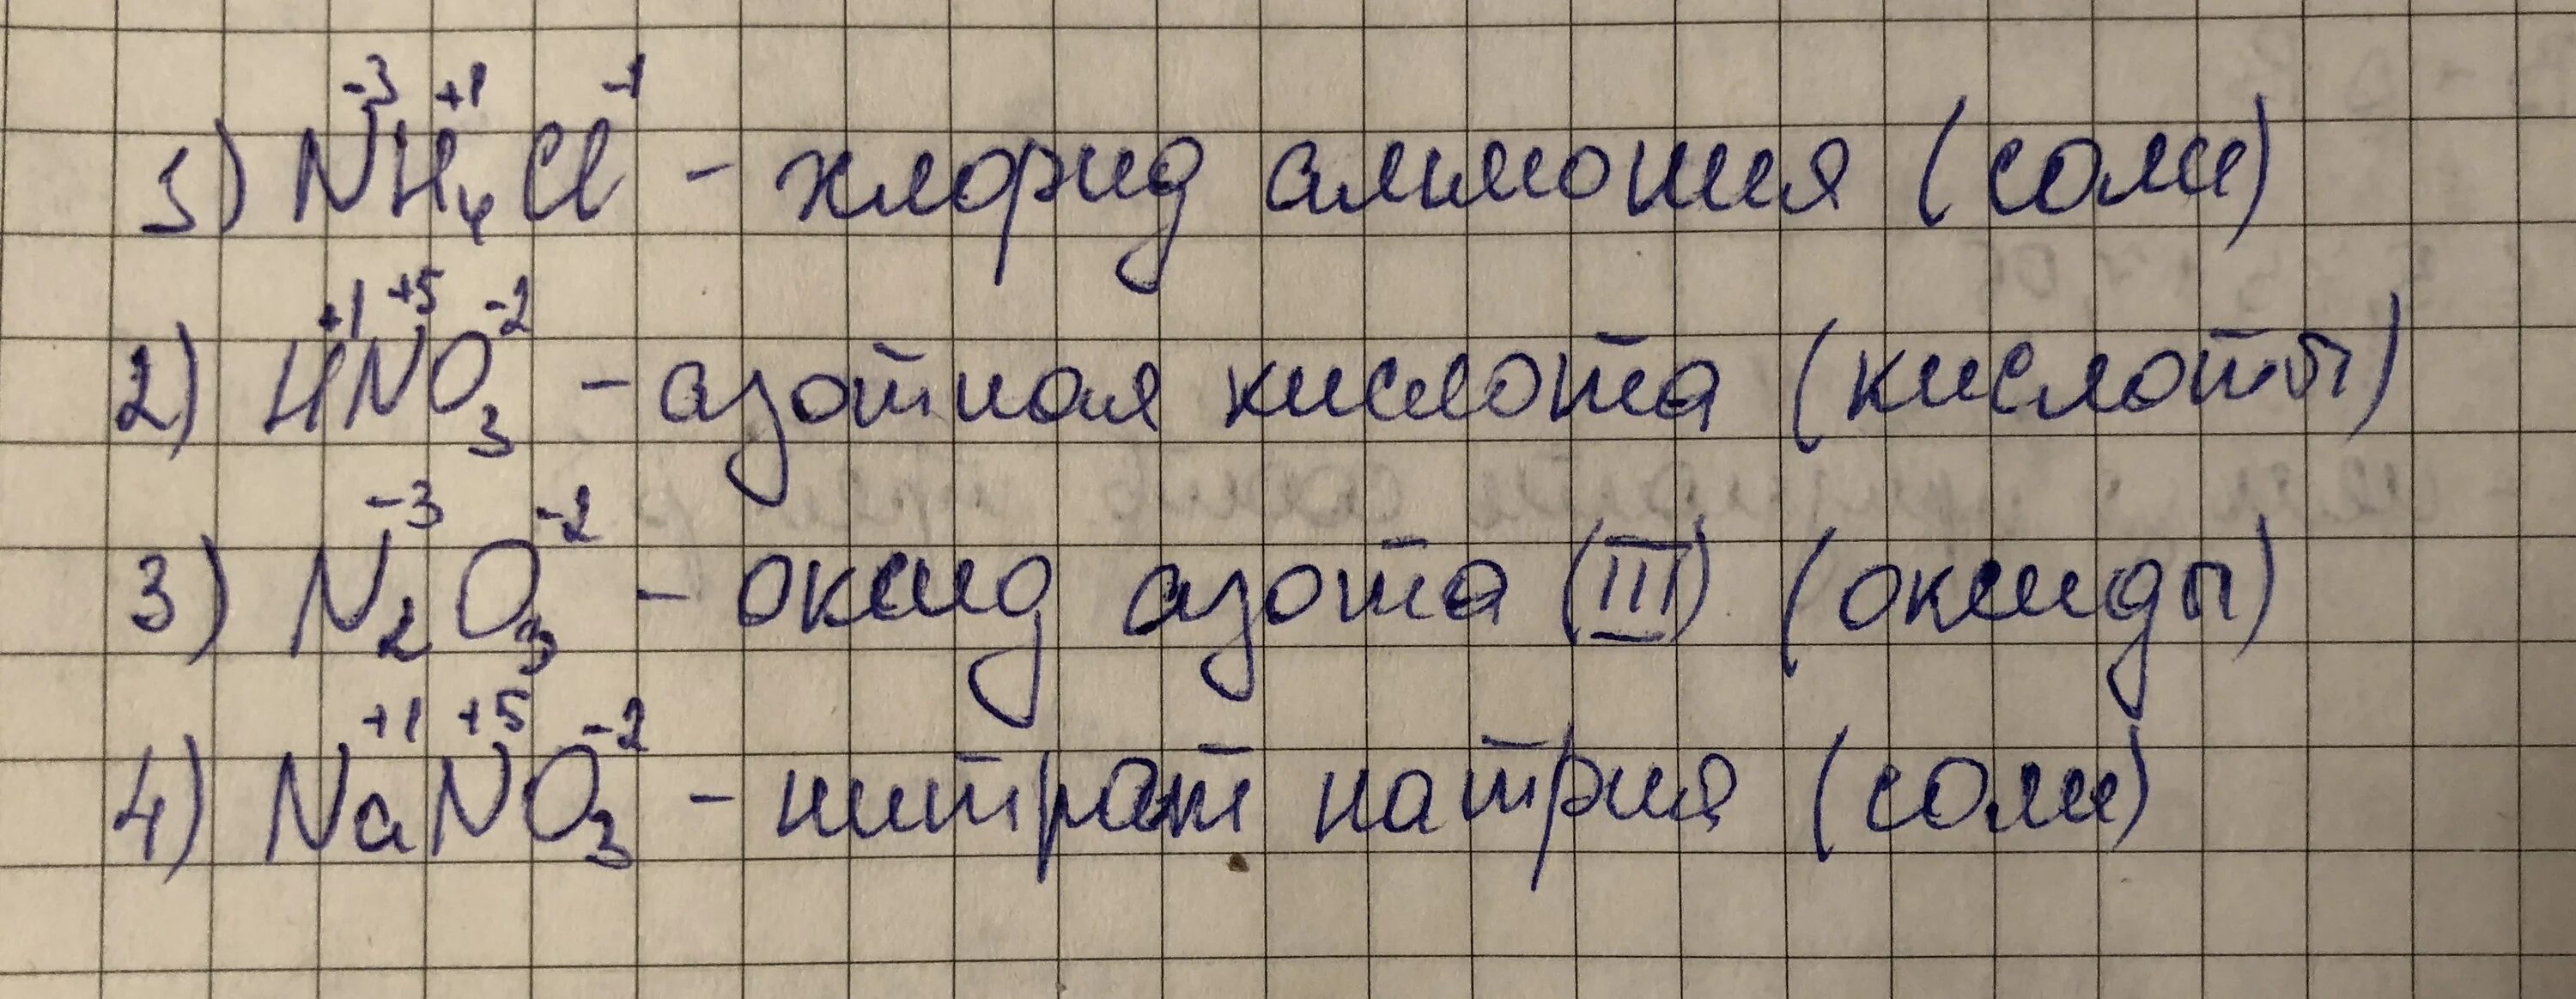 1) N⁻³H⁺¹₄Cl⁻¹ - хлорид аммония (соли)
2) H⁺¹N⁺⁵O⁻²₃ - азотная кислота (кислоты)
3) N⁻³₂O⁻²₃ - оксид азота (III) (оксиды)
4) Na⁺¹N⁺⁵O⁻²₃ - нитрат натрия (соли)